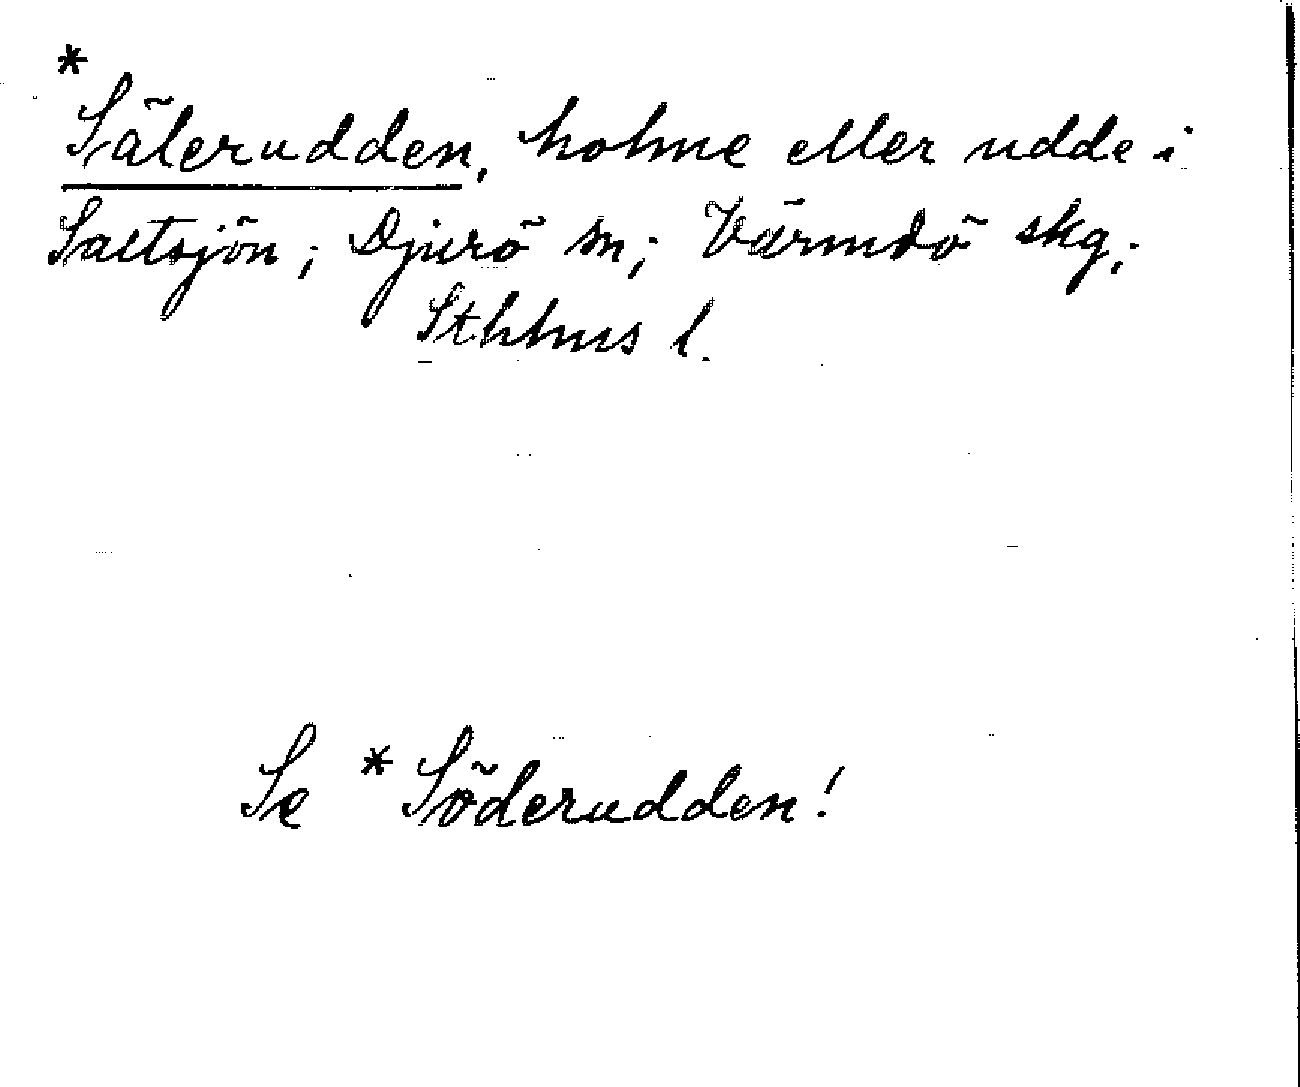 *Sälerudden, holme eller udde i
Saltsjön; Djurö sn; Värmdö skg;
Sthlms l.
Se *Söderudden!